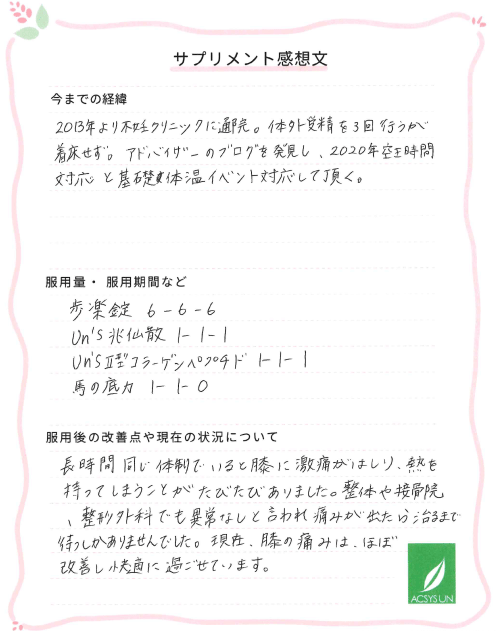 サプリメント感想文
今までの経緯
2013年より不妊クリニックに通院。体外受精を3回行うが
着床せず。アドバイザーのブログを発見し、2020年空王時間
対応と基礎体温イベント対応して頂く。
服用量・服用期間など
歩楽錠 6-6-6
Un's 兆仙散 1-1-1
Un'sⅡ型コラーゲンペプチド 1-1-1
馬の底力 1-1-0
服用後の改善点や現在の状況について
長時間同じ体制でいると膝に激痛がはしり、熱を
持ってしまうことがたびたびありました。整体や接骨院
、整形外科でも異常なしと言われ痛みが出たら治るまで
待つしかありませんでした。現在、膝の痛みは、ほぼ
改善し快適に過ごせています。
ACSYSUN